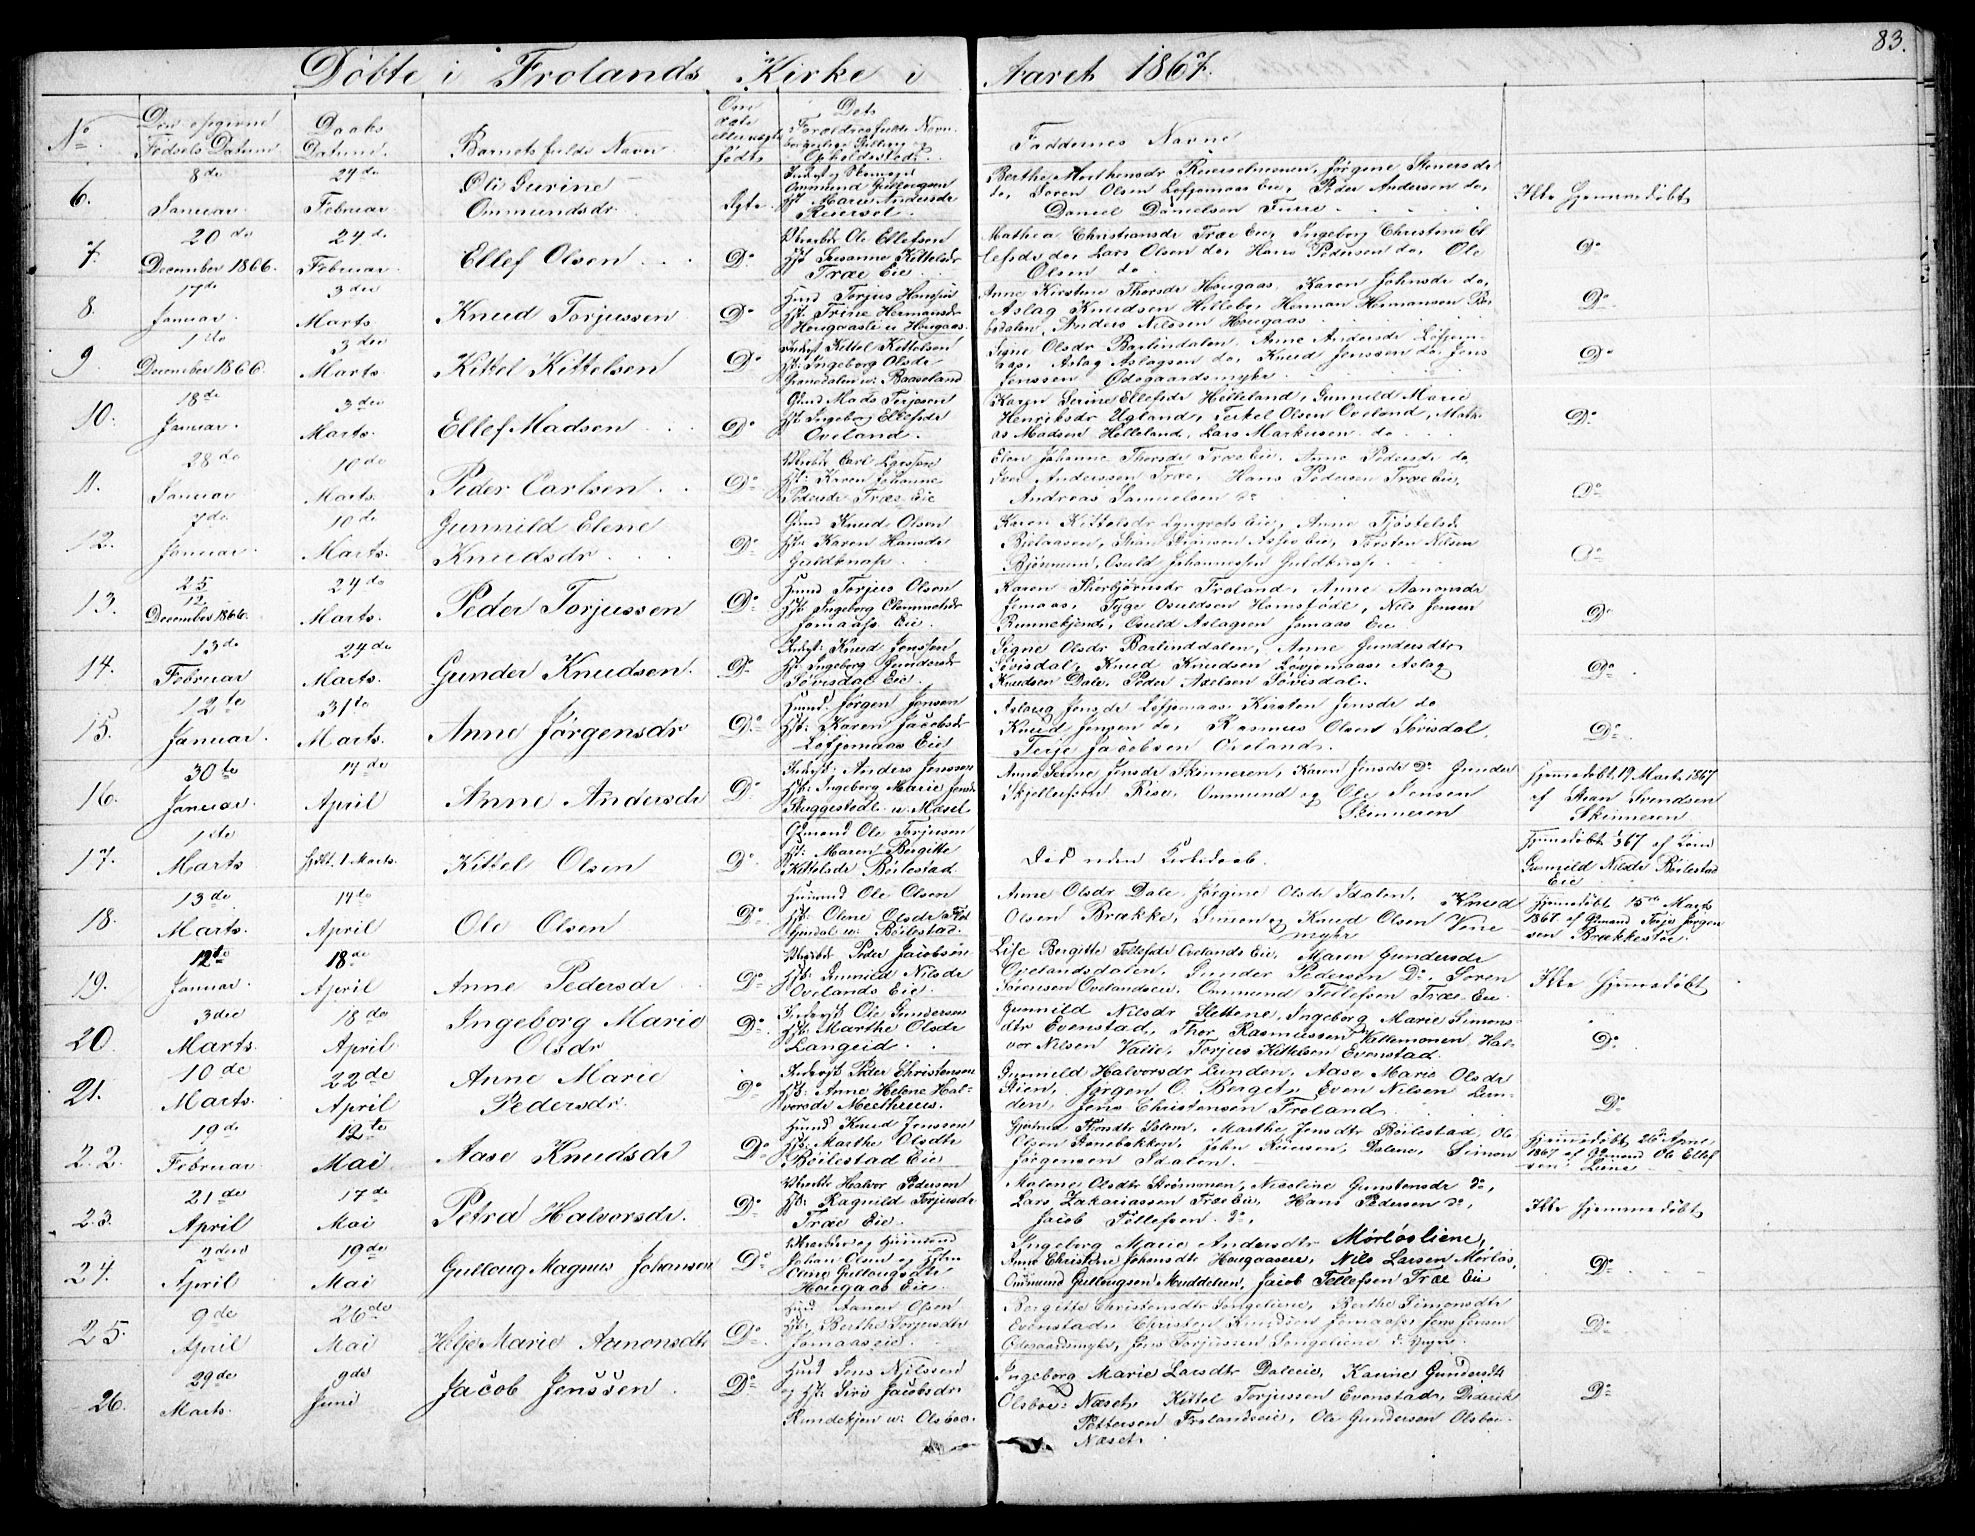 83.
Döbte i Frolands Kirke i Aaret 1867.
No. Den opgivne Fødsels Datum. Daabs Datum. Barnets fulde Navn Om ægte eller uægte født. Dets Forældres fulde Navn borgerlige Stilling og Opholdssted. Faddernes Navne
6. 8de Januar. 24de Februar. Oli Gurine Ommundsdr. Ægte. Ommund Gullougsen Hst. Marie Andersdr Reiersøl.
Søren Olsen Løfjomaas Eie, Peder Andersen do,
Daniel Danielsen Furre
Ikke hjemmedøbt
7. 20de December 1866. 24de Februar. Ellef Olsen Do Ole Ellefsen Hst. Susanne Kittelsdr Træe Eie
Mathea Christiansdr Træe Eie, Ingeborg Christine El
lefsdr do, Lars Olsen do, Hans Pedersen do, Ole
Olsen do
Do
8. 17de Januar. 3die Marts. Knud Torjussen Do Hmd Torjus Hansen Hst. Trine Hermansdr Hougaasli u. Hougaas.
Anne Kirstine Thorsdr Hougaas, Karen Johnsdr do,
Aslag Knudsen Hillebo, Herman Hermansen Bo
bdalen, Anders Nilsen Hougaas
Do
9. 1ste December 1866. 3die Marts. Kittel Kittelsen Do Kittel Kittelsen Hst. Ingeborg Olsdr Grønedalen u. Baaseland
Signe Olsdr Barlindalen, Anne Andersdr Løfjom-
aas, Aslag Aslagsen do, Knud Jenssen do, Jens
Jenssen Ødegaardsmyhr
Do
10. 18de Januar. 3die Marts. Ellef Madsen Do Gmd Mads Terjesen Hst. Ingeborg Ellefsdr Oveland.
Karen Serine Ellefsdr Helleland, Gunnild Marie
Henriksdr Ugland, Terkel Olsen Oveland, Mathi
as Madsen Helleland, Lars Markusen do
Do
11. 28de Januar 10de Marts. Peder Carlsen Do Carl Larssen Hst. Karen Johanne Pedersdr Træe Eie
Elen Johanne Thorsdr Træe Eie, Anne Pedersdr do
Iver Anderssen Træe, Hans Pedersen Træe Eie,
Andreas Samuelsen do
Do
12. 7de Januar. 10de Marts. Gunnild Elene Knudsdr Do Gmd Knud Olsen Hst. Karen Hansdr Guldknap.
Karen Kittelsdr Lyngrots Eie, Anne Tjøstelsdr
Torsten Nilsen
Osuld Johannessen Guldknap
Do
13. 25/12 December 1866. 24de Marts. Peder Torjussen Do Hmd Torjus Olsen Hst. Ingeborg Jomaas Eie
Karen Thorbjørnsdr Froland, Anne Aanonsdr
Jomaas, Tyge Osuldsen Hornsfødl, Nils Jensen
Runnekjend, Osuld Aslagsen Jomaas Eie
Do
14. 13de Februar 24de Marts. Gunder Knudsen. Do Knud Jenssen Hst. Ingeborg Gundersdr Søvisdal Eie
Signe Olsdr Barlinddalen, Anne Gundersdtr
Søvisdal, Knud Knudsen Løvjomaas, Aslag
Knudsen Dale, Peder Axelsen Søvisdal.
Do
15. 12te Januar. 31te Marts. Anne Jørgensdr Do Hmd Jørgen Jensen Hst. Karen Jacobsdr Løfjomaas Eie
Aslaug Jensdr Løfjomaas, Kirsten Jensdr do
Knud Jensen do, Rasmus Olsen Søvisdal,
Terje Jacobsen Oveland.
Do
16. 30te Januar. 14de April Anne Andersdr Do Anders Jenssen Hst. Ingeborg Marie Jensdr Skuggestedl. u. Mæsel
Anne Serine Jensdr Skinneren, Karen Jensdr Do Gunder
Skjellefsøn Rise, Ommund og Ole Jensen
Skinneren
Hjemmedøbt 19 Marts 1867 af Stean Svendsen Skinneren
17. 1ste Marts Hjdbt. 1 Marts. Kittel Olsen Do Gmand Ole Torjussen Hst. Maren Birgitte Kittelsdr Böilestad.
Død uden Kirkedaab.
Gunnild Nilsdr Böilestad Eie
18. 13de Marts. 14de April Ole Olsen Do Husmand Ole Olsen Hst. Olene Olsdr u. Böilestad.
Anne Olsdr Dale, Jørgine Olsdr Idalen, Knud
Olsen Brække, Simon og Knud Olsen Vine
myhr
Hjemmedøbt 15de Marts 1867 af Gmand Terje Jørgensen Brækkestøe.
19. 12te Januar. 18de April Anne Pedersdr Do Peder Jacobsen Hst. Gunnild Nilsdr Ovelands Eie
Lise Bergitte Tellefsdr Ovelands Eie, Maren Gundersdr
Ovelandsdalen, Gunder Pedersen Do, Søren
Sørensen Ovelandseie, Ommund Tellefsen Træe Eie
Ikke hjemmedøbt
20. 3die Marts. 18de April Ingeborg Marie Olsdr Do Ole Gundersen Hst. Marthe Olsdr Langeid
Gunnild Nilsdr Hettene, Ingeborg Marie Simons-
dtr Evenstad, Thor Rasmussen Vattemonen, Hal-
vor Nilsen Valle, Torjus Kittelsen Evenstad.
Do
21. 10de Marts. 22de April Anne Marie Pedersdr. Do Peder Christensen Hst. Anne Helene Halvorsdr Mælhuus.
Gunnild Halvorsdr Lunden, Aase Marie Olsdr
Stien, Jørgen O. Berget, Even Nilsen Lun-
den, Jens Christensen Froland
Do
22. 19de Februar 12te Mai Aase Knudsdr Do Hmd Knud Jenssen Hst. Marthe Olsdtr Böilestad Eie
Marthe Jensdtr Böilestad, Ole
Olsen Stenebakken, John Dalene, Simon
Jørgensen Idalen.
Hjemmedøbt 26 April 1867 af Gmand Ole Ellefsen Liene
23. 21de April 17de Mai Petra Halvorsdr. Do Halvor Pedersen Hst. Ragnild Torjusdr Træe Eie
Malene Olsdtr Strømmen, Nicoline Gunstensdr do,
Lars Zakariassen Træe Eie, Hans Pedersen do,
Jacob Tellefsen do,
Ikke hjemmedøbt
24. 2den April 19de Mai Gulloug Magnus Johansen Do Johan Olsen og Hstn Oline Gullougsdtr Hougaas Eie
Ingeborg Marie Andersdtr Mørløsliene,
Anne Christine Johansdtr Hougaaseie, Nils Larsen Mørløs,
Ommund Gullougsen Muddelsen, Jacob Tellefsen Træe Eie
Do
25. 9de April 26de Mai Helje Marie Aanonsdtr Do Hmd Aanon Olsen Hst. Berthe Torjusdtr Jomaaseie
Bergitte Christensdtr Songeliene, Berthe Simonsdtr
Evenstad, Christen Knudsen Jomaas, Jens Jensen
Ødegaardsmyhr, Jens Torjussen Songeliene d. yngre.
Do
26. 29de Marts. 9de Juni Jacob Jenssen Do Hmd Jens Nilssen og Hst. Siri Jacobsdr Rundekjen u. Olsboe.
Ingeborg Marie Larsdtr Daleeie, Karine Gundersdtr
Olsboe Næset, Kittel Torjussen Evenstad, Diderik
Pettersen Frolandseie, Ole Gundersen Olsboe
Næset.
Do